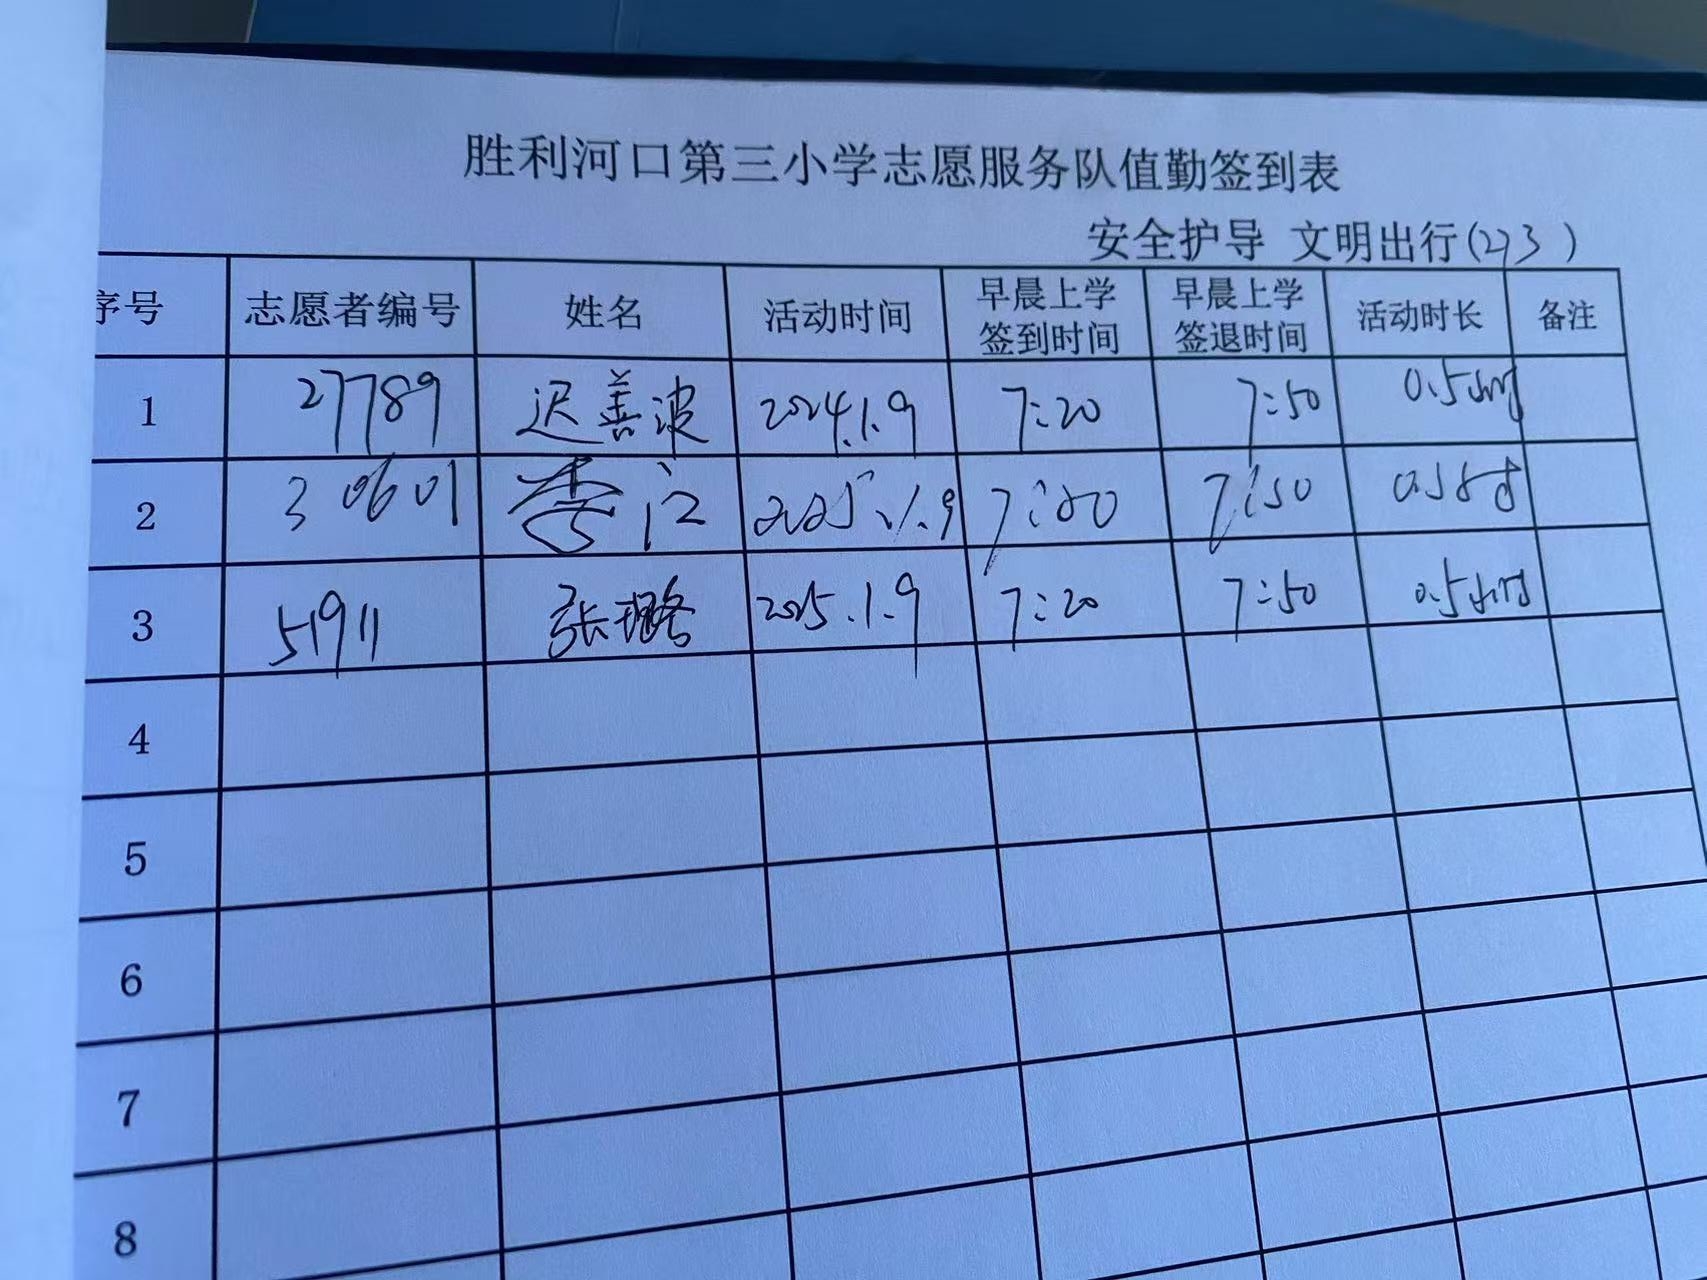 胜利河口第三小学志愿服务队值勤签到表
安全护导 文明出行(273)
序号 志愿者编号 姓名 活动时间 早晨上学签到时间 早晨上学签退时间 活动时长 备注
1 27789 迟善波 2024.1.9 7:20 7:50 0.5小时
2 30601 李江 2025.1.9 7:20 7:50 0.5小时
3 51911 张璐 2025.1.9 7:20 7:50 0.5小时
4
5
6
7
8